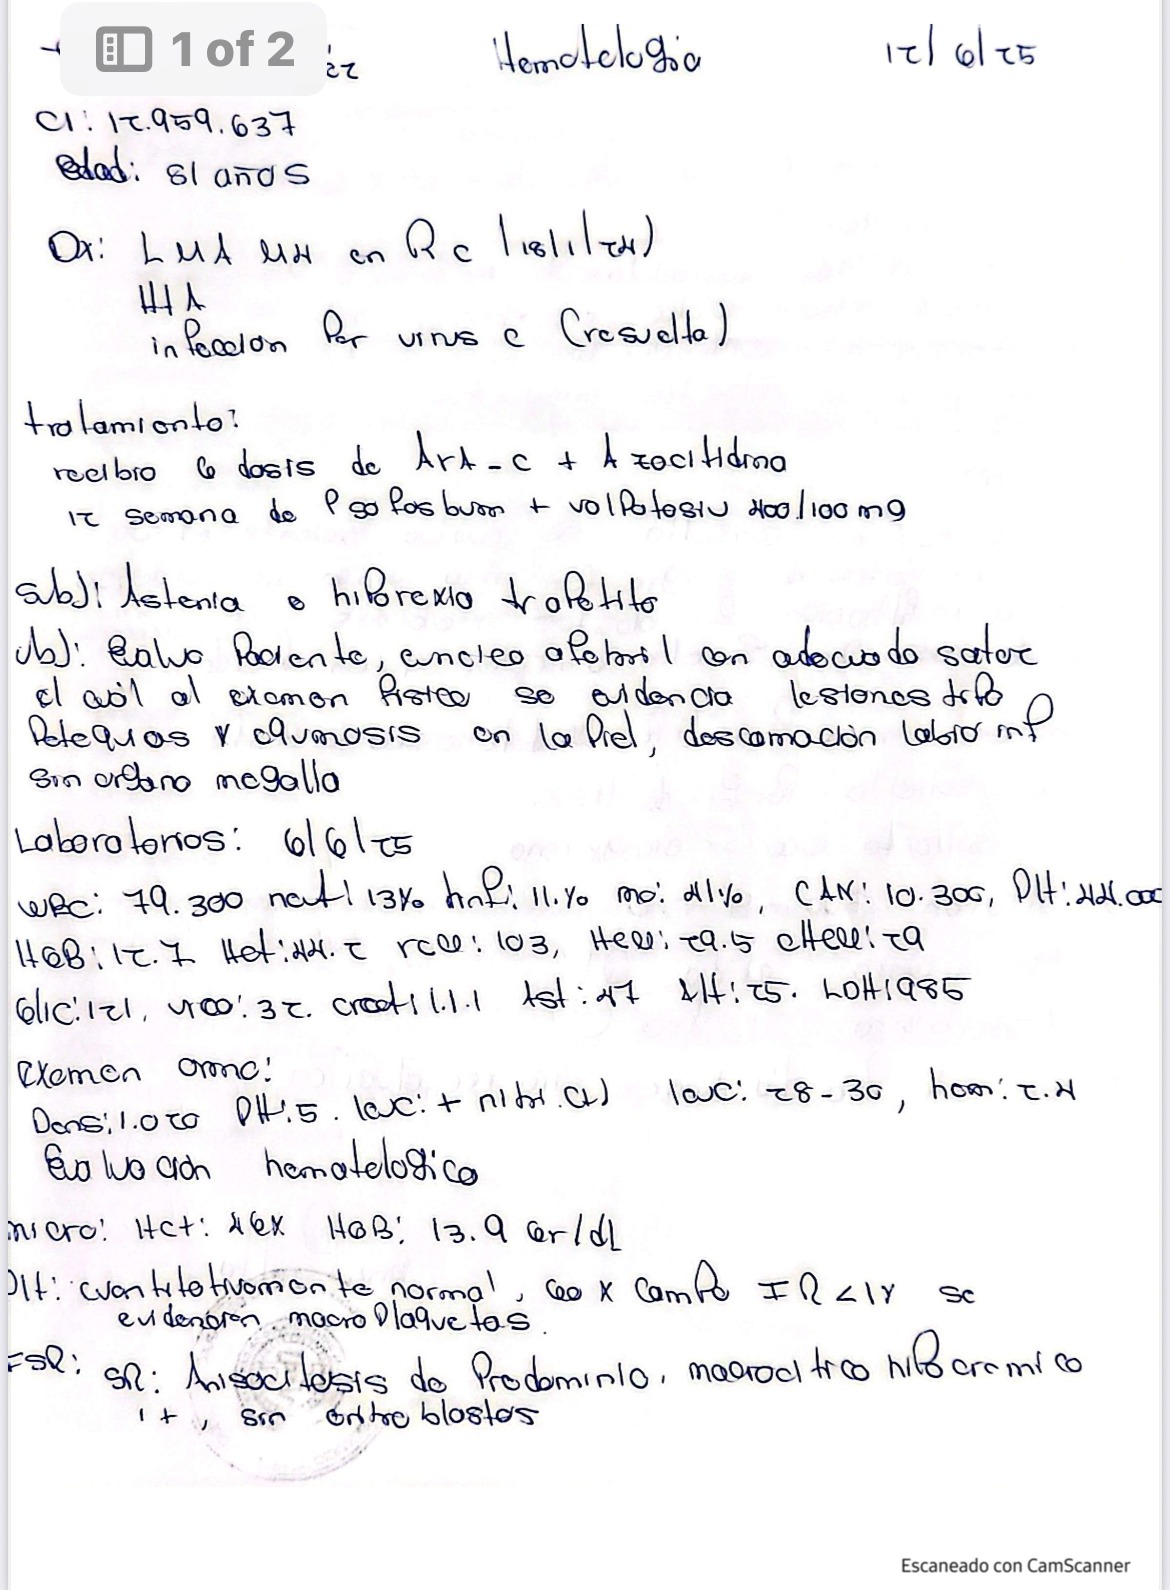 1 of 2
Hematologia 12/6/25
CI: 12.959.637
edad: 81 años
Dx: LMA M4 en Rc (18/1/24)
HTA
infeccion Por virus c (resuelta)
tratamiento:
recibio 6 dosis de ArA-c + Azacitidina
12 semana de + 400/100 mg
Subj: Astenia e hiporexia
obj: Paciente, afebril con adecuada satO2
el al examen fisico se evidencia lesiones tipo
Petequias y equimosis en la Piel, descamación labio inf
sin organo megalia
Laboratorios: 6/6/25
WBC: 79.300 neut: 13% linf: 11.% mo: 41%, CAN: 10.300, Plt: 44.000
HGB: 12.7 Hct: 44.2 vcm: 103, Hcm: 29.5 cHcm: 29
Glic: 121, urea: 32. creat: 1.1 Ast: 47 Alt: 25. LDH: 985
Examen orina:
Dens: 1.020 PH: 5. leuc: + nitri. (+) leuc: 28-30, hem: 2.4
Evaluación hematologica
micro: Hct: 46% HGB: 13.9 Gr/dL
Plt: cuantitativamente normal, x Campo IR <1% se
evidencian macro Plaquetas.
FSP: SR: Anisocitosis de Predominio, macrocitico hipocromico
1+, sin eritroblastos
Escaneado con CamScanner